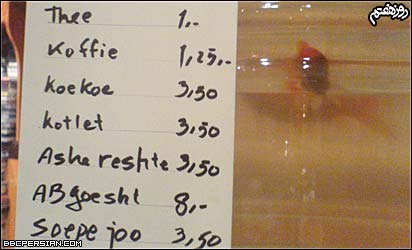 روز هفتم
Thee 1,-
Koffie 1,25,-
Koekoe 3,50
Kotlet 3,50
Ashe reshte 3,50
ABgoesht 8,-
Soepe joo 3,50
BBCPERSIAN.COM